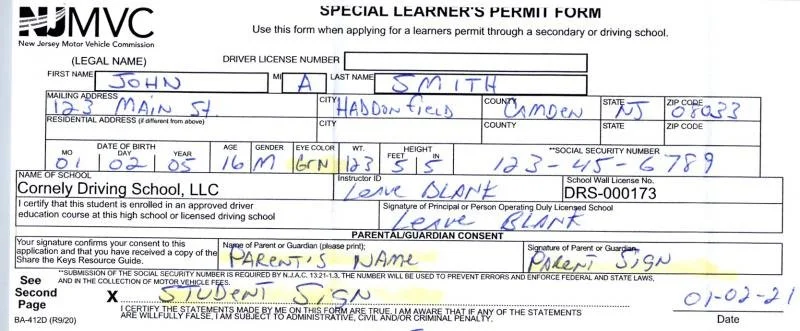 NJMVC
New Jersey Motor Vehicle Commission
SPECIAL LEARNER'S PERMIT FORM
Use this form when applying for a learners permit through a secondary or driving school.
(LEGAL NAME) DRIVER LICENSE NUMBER
FIRST NAME JOHN MI A LAST NAME SMITH
MAILING ADDRESS 123 MAIN St CITY HADDONfield COUNTY CAMDEN STATE NJ ZIP CODE 08033
RESIDENTIAL ADDRESS (if different from above) CITY COUNTY STATE ZIP CODE
DATE OF BIRTH AGE GENDER EYE COLOR WT. HEIGHT **SOCIAL SECURITY NUMBER
MO DAY YEAR FEET IN
01 02 05 16 M GrN 123 5 5 123-45-6789
NAME OF SCHOOL Instructor ID School Wall License No.
Cornely Driving School, LLC Leave BLANK DRS-000173
I certify that this student is enrolled in an approved driver
education course at this high school or licensed driving school
Signature of Principal or Person Operating Duly Licensed School
Leave BLANK
PARENTAL/GUARDIAN CONSENT
Your signature confirms your consent to this
application and that you have received a copy of the
Share the Keys Resource Guide.
Name of Parent or Guardian (please print);
PARENT'S NAME
Signature of Parent or Guardian
PARENT SIGN
**SUBMISSION OF THE SOCIAL SECURITY NUMBER IS REQUIRED BY N.J.A.C. 13:21-1.3, THE NUMBER WILL BE USED TO PREVENT ERRORS AND ENFORCE FEDERAL AND STATE LAWS,
AND IN THE COLLECTION OF MOTOR VEHICLE FEES.
See
Second
Page
X STUDENT SIGN 01-02-21
I CERTIFY THE STATEMENTS MADE BY ME ON THIS FORM ARE TRUE. I AM AWARE THAT IF ANY OF THE STATEMENTS
ARE WILLFULLY FALSE, I AM SUBJECT TO ADMINISTRATIVE, CIVIL AND/OR CRIMINAL PENALTY.
Date
BA-412D (R9/20)